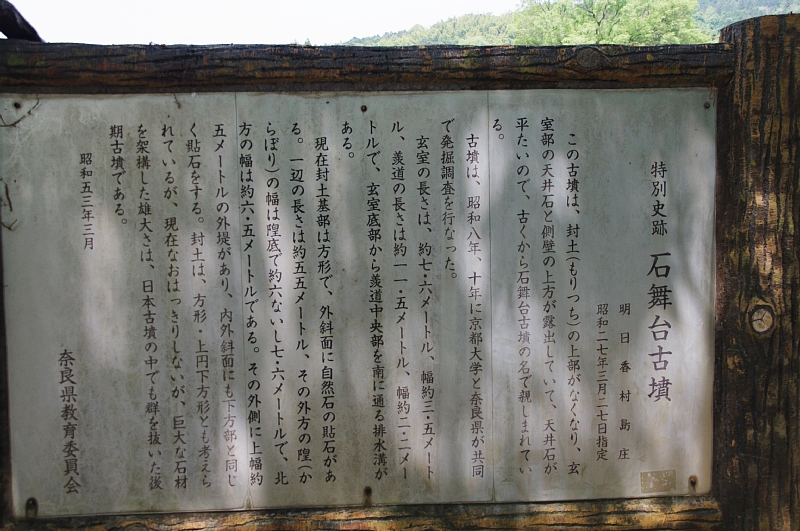 特別史跡 石舞台古墳
明日香村島庄
昭和二七年三月二七日指定
この古墳は、封土(もりつち)の上部がなくなり、玄
室部の天井石と側壁の上方が露出していて、天井石が
平たいので、古くから石舞台古墳の名で親しまれてい
る。
古墳は、昭和八年、十年に京都大学と奈良県が共同
で発掘調査を行なった。
玄室の長さは、約七・六メートル、幅約三・五メート
ル、羨道の長さは約一一・五メートル、幅約二・二メー
トルで、玄室底部から羨道中央部を南に通る排水溝が
ある。
現在封土基部は方形で、外斜面に自然石の貼石があ
る。一辺の長さは約五五メートル、その外方の隍(か
らぼり)の幅は隍底で約六ないし七・六メートルで、北
方の幅は約六・五メートルである。その外側に上幅約
五メートルの外堤があり、内外斜面にも下方部と同じ
く貼石をする。封土は、方形・上円下方形とも考えら
れているが、現在なおはっきりしないが、巨大な石材
を架構した雄大さは、日本古墳の中でも群を抜いた後
期古墳である。
昭和五三年三月
奈良県教育委員会